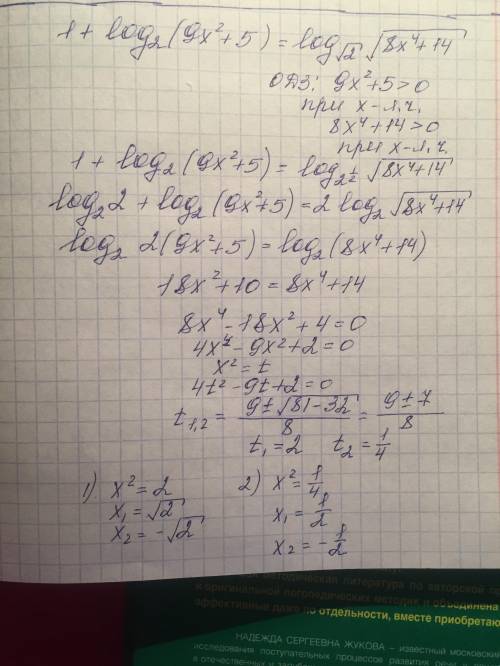 1 + log₂(9x²+5) = log_√2 √(8x⁴+14)
ОДЗ: 9x²+5>0
при x-л.ч.
8x⁴+14>0
при x-л.ч.
1 + log₂(9x²+5) = log_2^(1/2) √(8x⁴+14)
log₂2 + log₂(9x²+5) = 2 log₂ √(8x⁴+14)
log₂ 2(9x²+5) = log₂(8x⁴+14)
18x²+10 = 8x⁴+14
8x⁴-18x²+4=0
4x⁴-9x²+2=0
x²=t
4t²-9t+2=0
t₁,₂ = (9±√(81-32))/8 = (9±7)/8
t₁=2 t₂=1/4
1) x²=2
x₁=√2
x₂=-√2
2) x²=1/4
x₁=1/2
x₂=-1/2
методическая литература по авторской
и оригинальной логопедических методик и объединена
эффективные даже по отдельности, вместе приобретаю
НАДЕЖДА СЕРГЕЕВНА ЖУКОВА – известный московский
исследования поступательных процессов развития речи
в отечественных и